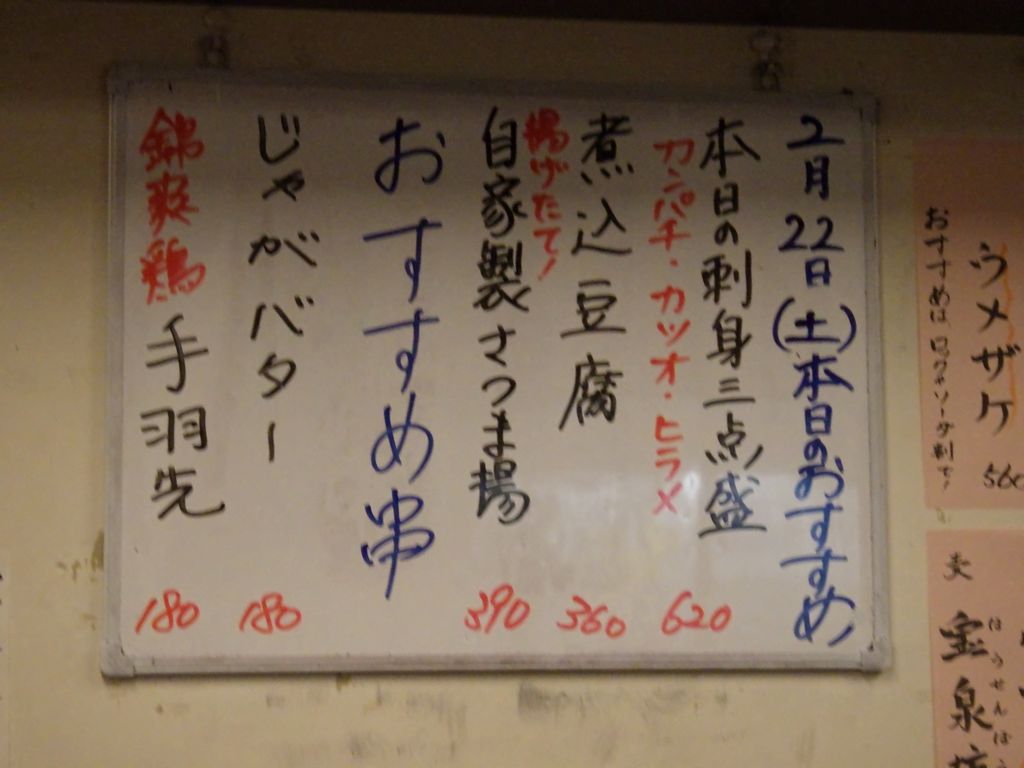 2月22日(土)本日のおすすめ
本日の刺身三点盛
カンパチ・カツオ・ヒラメ
620
煮込豆腐
360
揚げたて!
自家製さつま揚
390
おすすめ串
じゃがバター
180
錦爽鶏手羽先
180
ウメザケ
560
おすすめはロックorソーダ割で!
宝泉坊
ほうせんぼう